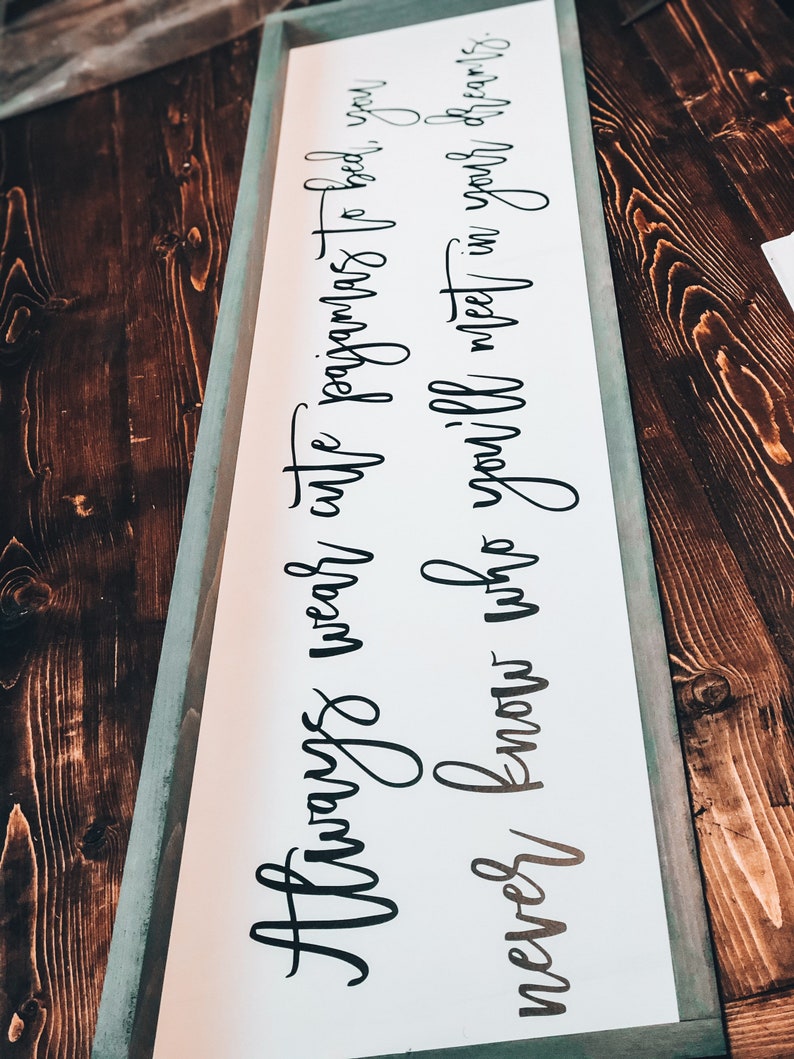 Always wear cute pajamas to bed, you
never know who you'll meet in your dreams.